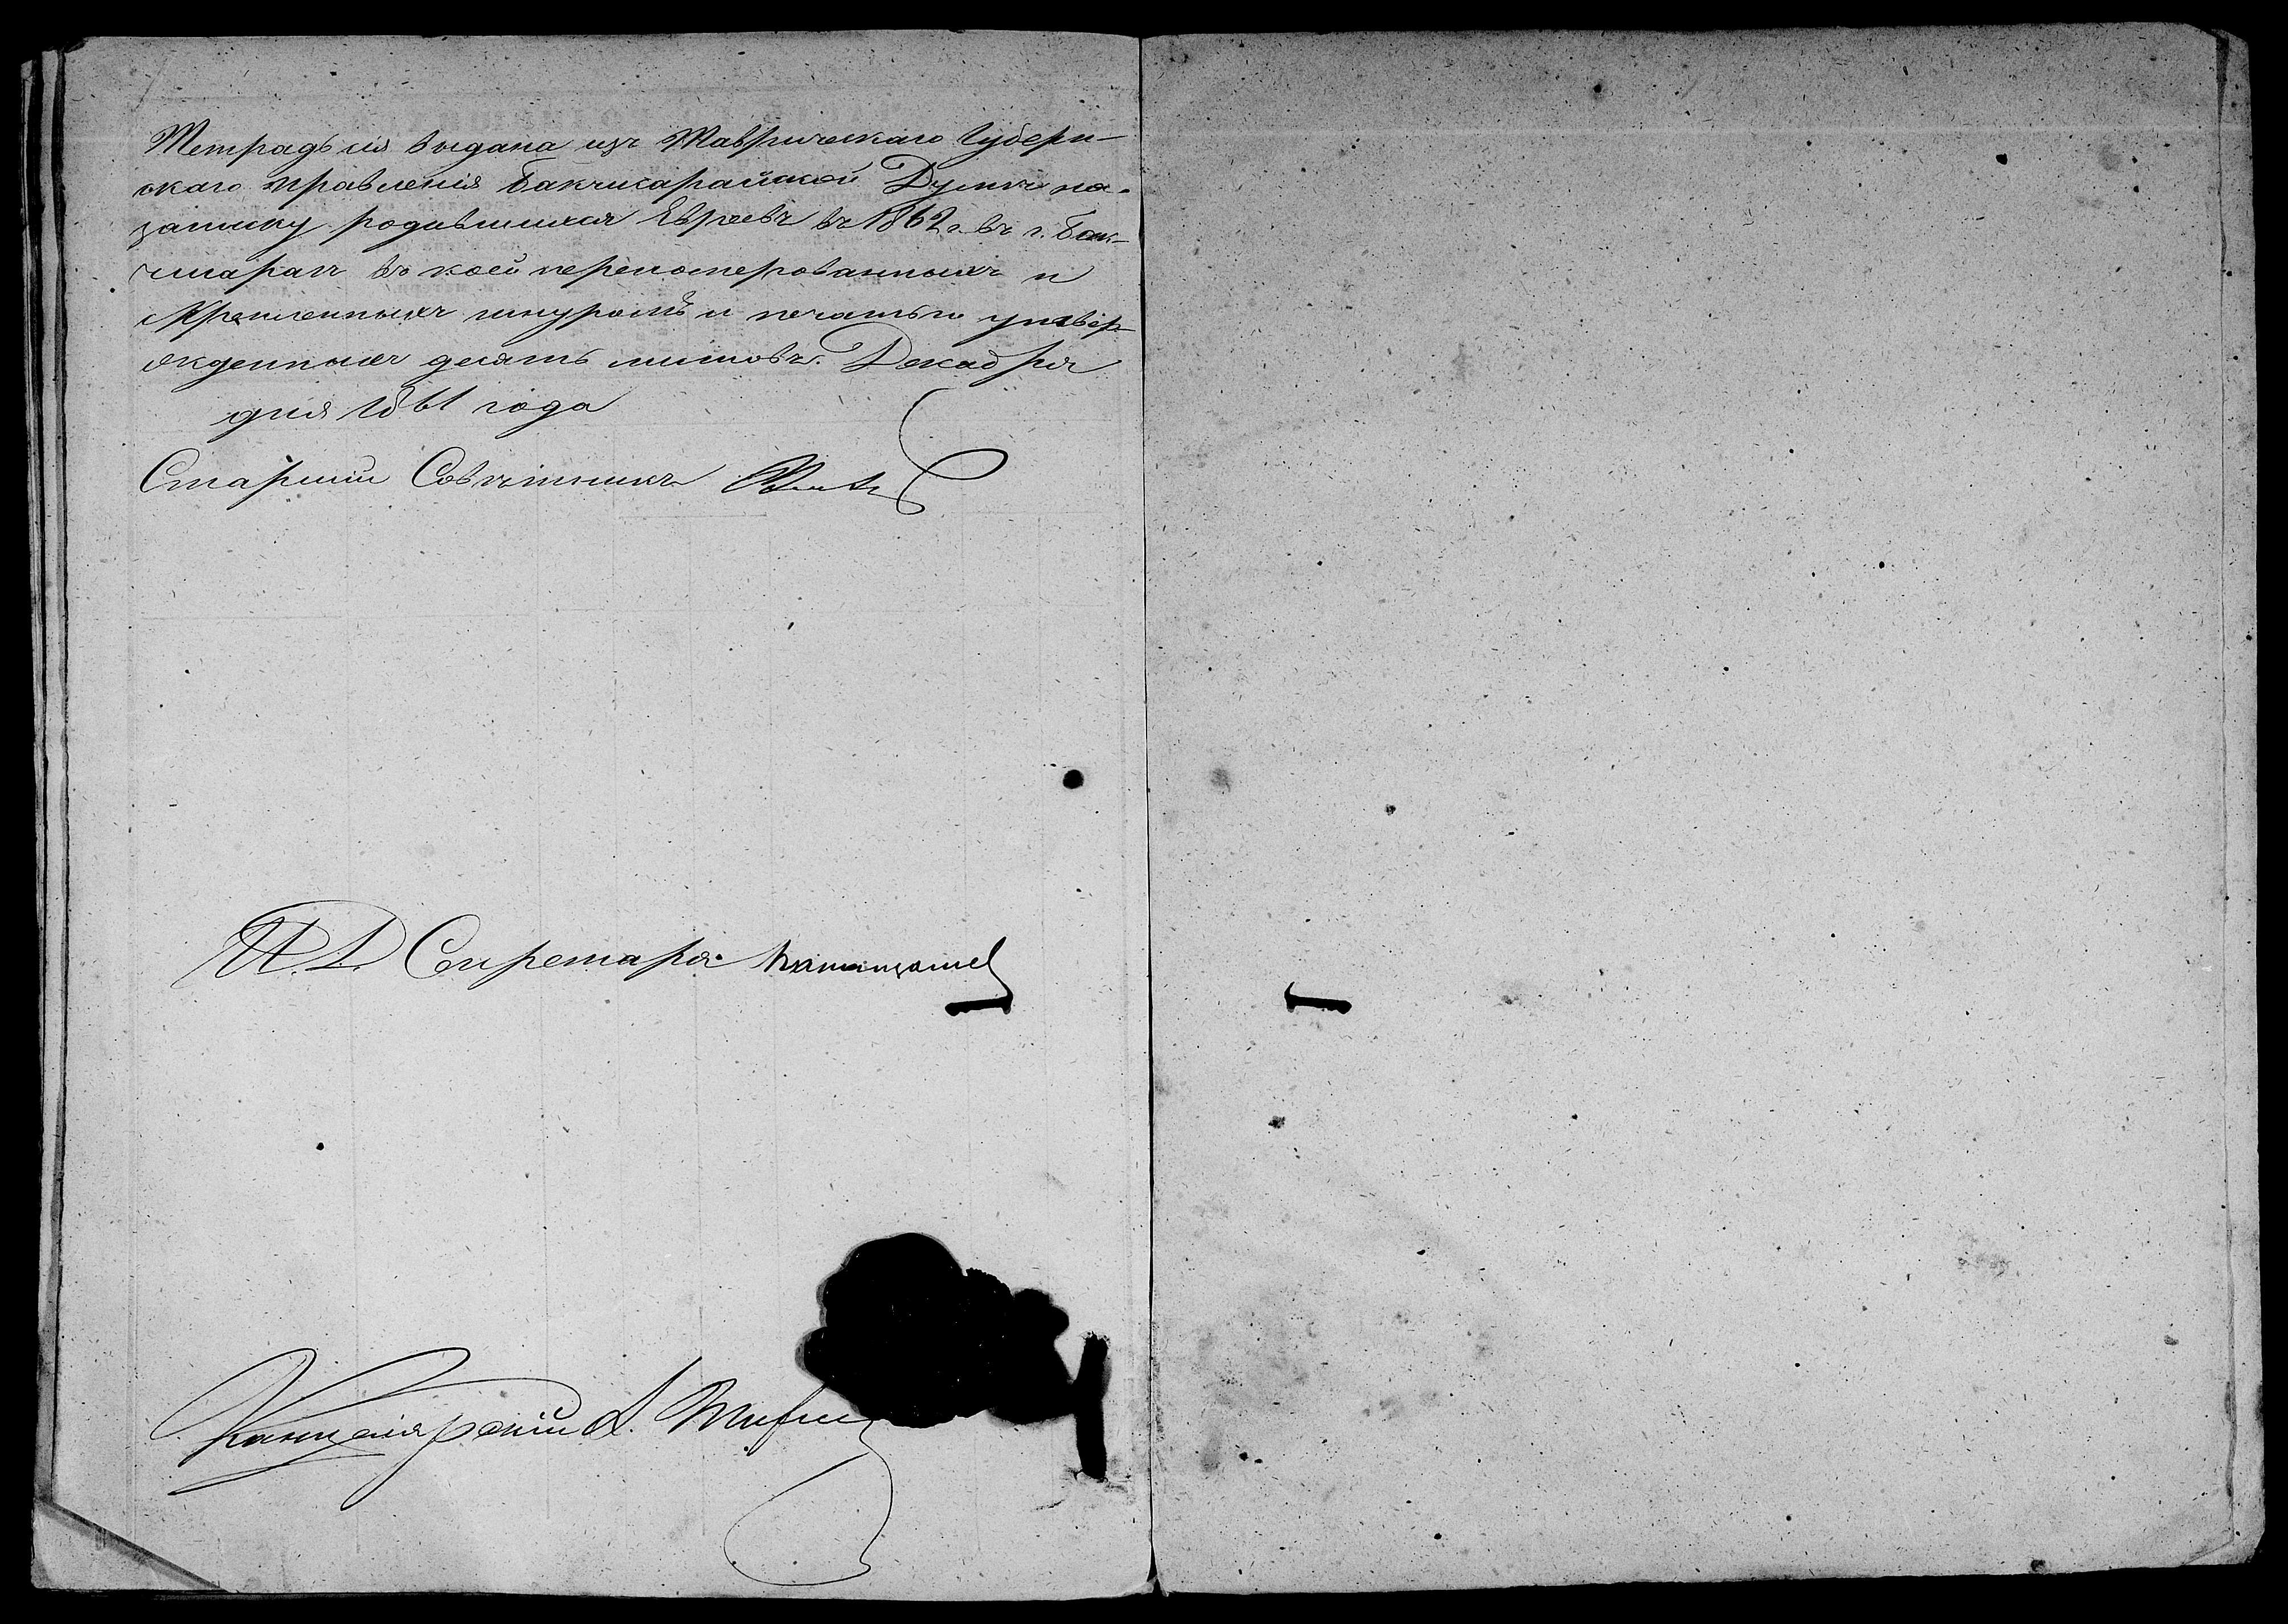 Тетрадь сія выдана изъ Таврическаго Губерн-
скаго Правленія Бакчисарайской Думѣ на
записку родившихся Евреевъ въ 1862 г. въ г. Бак-
чисараѣ въ коей перенумерованныхъ и
скрепленныхъ шнуромъ и печатью утвер-
жденныхъ десять листовъ. Декабря
дня 1861 года
Старшій Совѣтникъ
И. Д. Секретаря
Канцелярскій А.